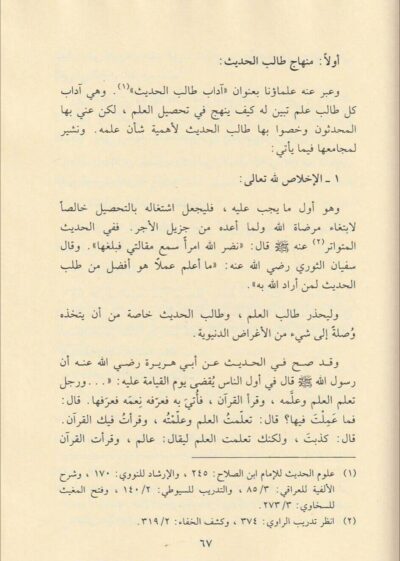 أولاً: منهاج طالب الحديث:
وعبر عنه علماؤنا بعنوان «آداب طالب الحديث»(١). وهي آداب
كل طالب علم تبين له كيف ينهج في تحصيل العلم ، لكن عني بها
المحدثون وخصوا بها طالب الحديث لأهمية شأن علمه. ونشير
لمجامعها فيما يأتي:
١ ـ الإخلاص لله تعالى:
وهو أول ما يجب عليه ، فليجعل اشتغاله بالتحصيل خالصاً
لابتغاء مرضاة الله ولما أعده من جزيل الأجر. ففي الحديث
المتواتر(٢) عنه ﷺ قال: «نضر الله امرأ سمع مقالتي فبلغها». وقال
سفيان الثوري رضي الله عنه: «ما أعلم عملاً هو أفضل من طلب
الحديث لمن أراد الله به».
وليحذر طالب العلم ، وطالب الحديث خاصة من أن يتخذه
وُصلةً إلى شيء من الأغراض الدنيوية.
وقد صح في الحديث عن أبي هريرة رضي الله عنه أن
رسول الله ﷺ قال في أول الناس يُقضى يوم القيامة عليه: «...ورجل
تعلم العلم وعلَّمه ، وقرأ القرآن ، فأُتيَ به فعرّفه نِعمَه فعرفها. قال:
فما عَمِلتَ فيها؟ قال: تعلّمتُ العلم وعلَّمْتُه ، وقرأتُ فيك القرآن.
قال: كذبتَ ، ولكنك تعلمت العلم ليقال: عالم ، وقرأت القرآن
(١) علوم الحديث للإمام ابن الصلاح: ٢٤٥ ، والإرشاد للنووي: ١٧٠ ، وشرح
الألفية للعراقي: ٣/ ٨٥ ، والتدريب للسيوطي: ٢/ ١٤٠ ، وفتح المغيث
للسخاوي: ٣/ ٢٧٣.
(٢) انظر تدريب الراوي: ٣٧٤ ، وكشف الخفاء: ٢/ ٣١٩.
٦٧